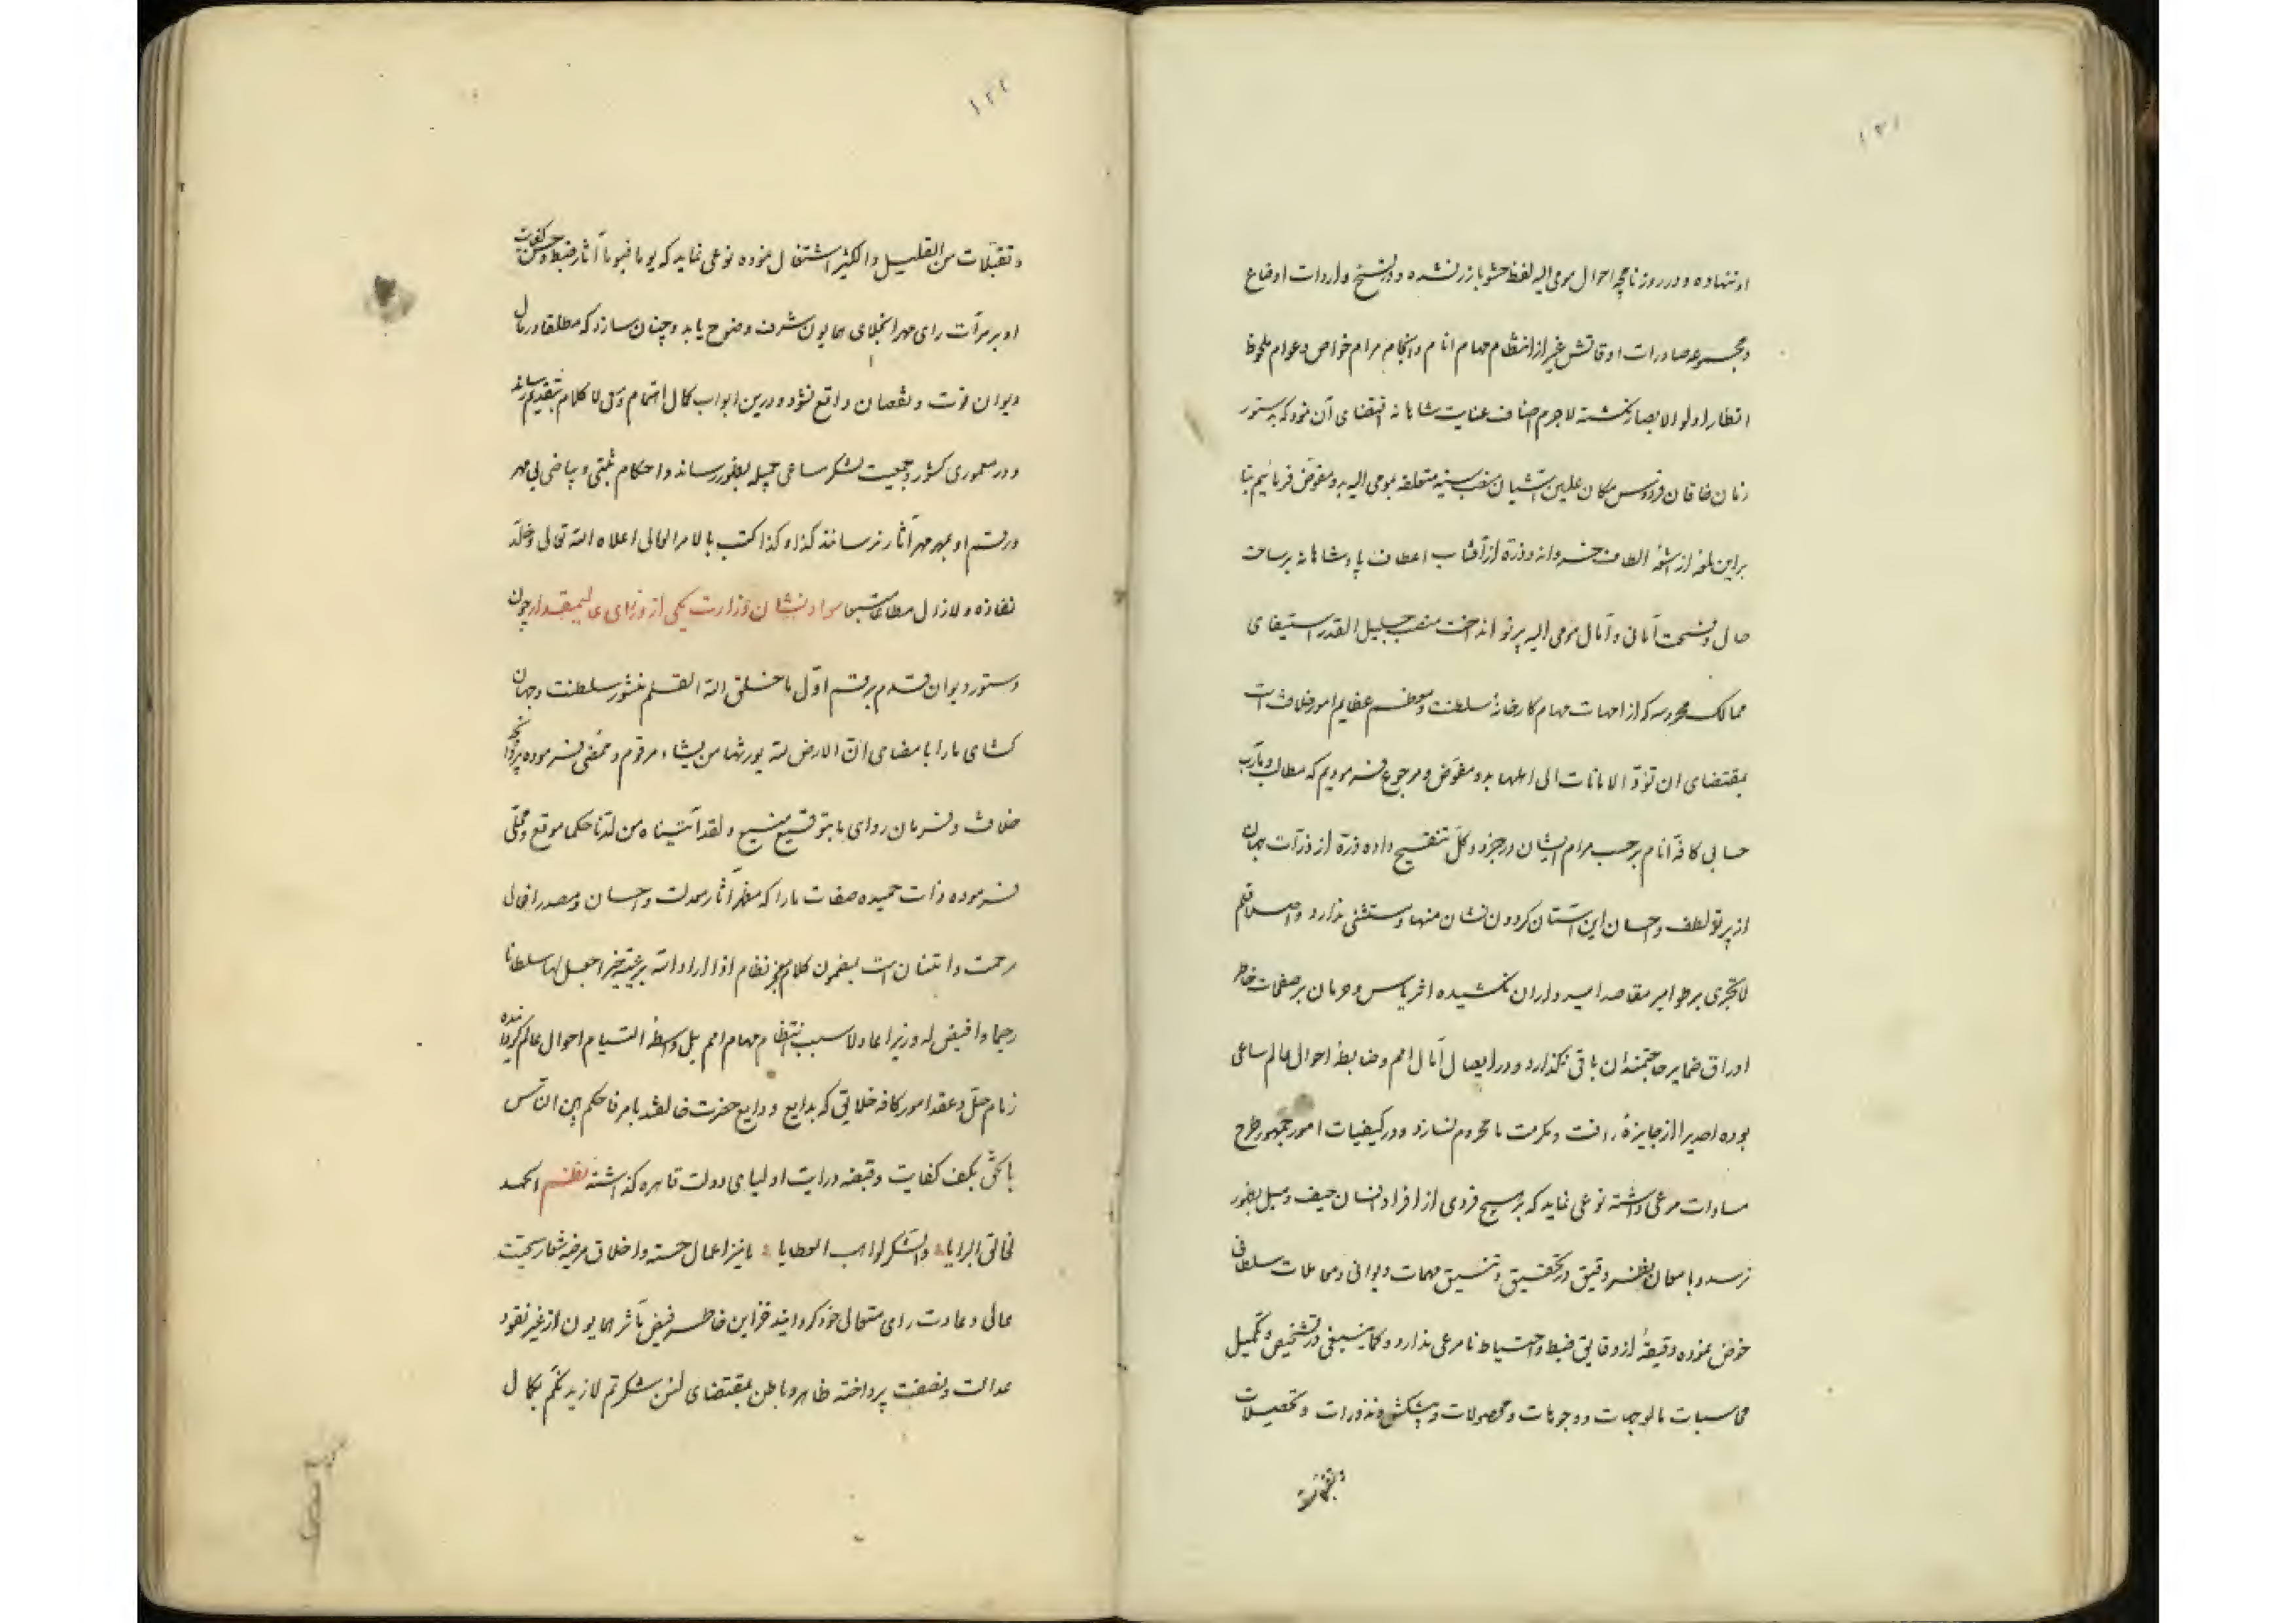 ۱۲۱
او ننهاده و در روزنامچه احوال مومی الیه لفظ حشو بارز نشده و در نسخ واردات اوضاع
و مجموعه صادرات اوقاتش غیر از انتظام مهام انام و انجام مرام خواص و عوام ملحوظ
انظار اولو الابصار نگشته لاجرم اصناف عنایت شاهانه اقتضای آن نمود که بدستور
زمان خاقان فردوس مکان علیین آشیان منصب سنیه متعلقه بمومی الیه بدو مفوض فرمائیم بنا
براین لمعه از اشعه الطاف خسروانه و ذره از آفتاب اعطاف پادشاهانه بر ساحت
حال و فسحت آمانی و آمال مومی الیه پرتو انداخت منصب جلیل القدر استیفای
ممالک محروسه که از امهات مهام کارخانه سلطنت و معظم عظایم امور خلافت است
بمقتضای ان تؤدّ الامانات الی اهلها بدو مفوّض و مرجوع فرمودیم که مطالب و مآرب
حسابی کافه انام بر حسب مرام ایشان در جزو و کلّ تنقیح داده ذره از ذرات جهان
از پرتو لطف و احسان این آستان گردون نشان منها و مستثنی ندارد و اصلا قلم
لاتجزی بر طوامیر مقاصد امیدواران نکشیده اثر یاس و حرمان بر صفحات خاطر
اوراق ضمایر حاجتمندان باقی نگذارد و در ایصال آمال امم و ضابطه احوال عالم ساعی
بوده احدیرا از جایزهٔ رافت و مکرمت ما محروم نسازد و در کیفیات امور جمهور طرح
مساوات مرعی داشته نوعی نماید که بر هیچ فردی از افراد انسان حیف و میل بظهور
نرسد و بامعان نظر دقیق در تحقیق و تنسیق مهمات دیوانی و معاملات سلطانی
خوض نموده دقیقهٔ از دقایق ضبط و احتیاط نامرعی ندارد و کما ینبغی در تشخیص و تکمیل
محاسبات مالوجهات و وجوهات و محصولات و پیشکش و نذورات و تحصیلات
و تقبلات
۱۲۲
و تقبّلات من القلیل و الکثیر اشتغال نموده نوعی نماید که یوما فیوماً آثار ضبط و حسن کفایت
او بر مرآت رای مهر انجلای همایون شرف وضوح یابد و چنان سازد که مطلقا در مال
دیوان فوت و نقصان واقع نشود و درین ابواب کمال اهتمام و سعی لا کلام بتقدیم رساند
و در معموری کشور و جمعیت لشکر ساعی جمیله بظهور رساند و احکام ثبتی و بیاضی بی مهر
و رقم او بمهر مهر آثار نرسانند کذا و کذا کتب بالامر العالی اعلاه الله تعالی و خلّد
نفاذه و لازال مطاعا متبعا سواد نشان وزارت یکی از وزرای عالیمقدار چون
دستور دیوان قدم برقم اوّل ما خلق الله القلم منشور سلطنت و جهان
کشای ما را بامضای انّ الارض لله یورثها من یشاء مرقوم و ممضی فرموده پروانچه
خلافت و فرمان روای ما بتوقیع منیع و لقد آتیناه من لدنا حکما موقع و محلّی
فرموده ذات حمیده صفات ما را که مظهر آثار معدلت و احسان و مصدر افعال
رحمت و امتنان است بمضمون کلام معجز نظام اذا اراد الله برعیة خیرا جعل لها سلطانا
رحیما و اقیض له وزیرا عادلا سبب انتظام مهام امم بل واسطهٔ التیام احوال عالم گردانیده
زمام حلّ و عقد امور کافه خلایق که بدایع ودایع حضرت خالقند بامر فاحکم بین الناس
بالحقّ بکف کفایت و قبضه درایت اولیای دولت قاهره گذاشته نظم الحمد
لخالق البرایا و الشکر لواهب العطایا ما نیز اعمال حسنه و اخلاق مرضیه شعار سجیت
عالی و عادت رای متعالی خود گردانیده خزاین خاطر فیض مآثر همایون از غیر نقود
عدالت و نصفت پرداخته ظاهر و باطن بمقتضای لئن شکرتم لازیدنّکم بکمال